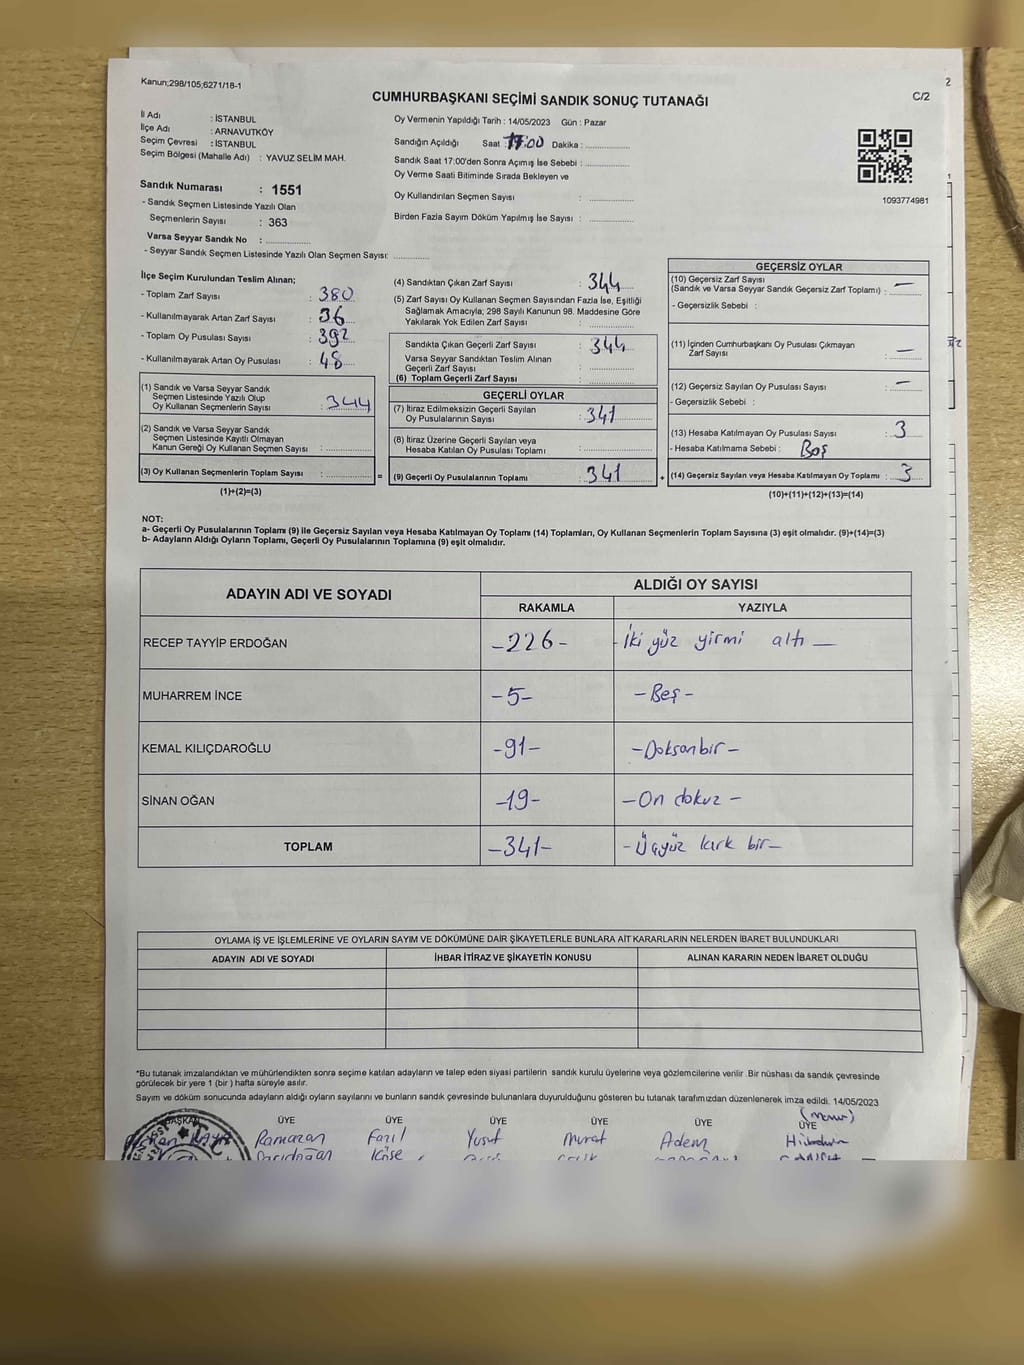 Kanun;298/105,6271/18-1
2
C/2
CUMHURBAŞKANI SEÇİMİ SANDIK SONUÇ TUTANAĞI
İl Adı : İSTANBUL
İlçe Adı : ARNAVUTKÖY
Seçim Çevresi : İSTANBUL
Seçim Bölgesi (Mahalle Adı) : YAVUZ SELİM MAH.
Sandık Numarası : 1551
- Sandık Seçmen Listesinde Yazılı Olan
Seçmenlerin Sayısı : 363
Varsa Seyyar Sandık No : ..............
- Seyyar Sandık Seçmen Listesinde Yazılı Olan Seçmen Sayısı: ............
Oy Vermenin Yapıldığı Tarih : 14/05/2023 Gün : Pazar
Sandığın Açıldığı Saat : 17:00 Dakika : ..............
Sandık Saat 17:00'den Sonra Açılmış İse Sebebi : ..............
Oy Verme Saati Bitiminde Sırada Bekleyen ve
Oy Kullandırılan Seçmen Sayısı : ..............
Birden Fazla Sayım Döküm Yapılmış İse Sayısı : ..............
1093774981
İlçe Seçim Kurulundan Teslim Alınan;
- Toplam Zarf Sayısı : 380
- Kullanılmayarak Artan Zarf Sayısı : 36
- Toplam Oy Pusulası Sayısı : 392
- Kullanılmayarak Artan Oy Pusulası : 48
(1) Sandık ve Varsa Seyyar Sandık
Seçmen Listesinde Yazılı Olup
Oy Kullanan Seçmenlerin Sayısı : 344
(2) Sandık ve Varsa Seyyar Sandık
Seçmen Listesinde Kayıtlı Olmayan
Kanun Gereği Oy Kullanan Seçmen Sayısı : ..............
(3) Oy Kullanan Seçmenlerin Toplam Sayısı : ..............
=
(1)+(2)=(3)
(4) Sandıktan Çıkan Zarf Sayısı : 344
(5) Zarf Sayısı Oy Kullanan Seçmen Sayısından Fazla İse, Eşitliği
Sağlamak Amacıyla; 298 Sayılı Kanunun 98. Maddesine Göre
Yakılarak Yok Edilen Zarf Sayısı : ..............
Sandıkta Çıkan Geçerli Zarf Sayısı : 344
Varsa Seyyar Sandıktan Teslim Alınan
Geçerli Zarf Sayısı : ..............
(6) Toplam Geçerli Zarf Sayısı : ..............
GEÇERLİ OYLAR
(7) İtiraz Edilmeksizin Geçerli Sayılan
Oy Pusulalarının Sayısı : 341
(8) İtiraz Üzerine Geçerli Sayılan veya
Hesaba Katılan Oy Pusulası Toplamı : ..............
(9) Geçerli Oy Pusulalarının Toplamı : 341
+
GEÇERSİZ OYLAR
(10) Geçersiz Zarf Sayısı
(Sandık ve Varsa Seyyar Sandık Geçersiz Zarf Toplamı) : —
- Geçersizlik Sebebi :
(11) İçinden Cumhurbaşkanı Oy Pusulası Çıkmayan
Zarf Sayısı : —
(12) Geçersiz Sayılan Oy Pusulası Sayısı : —
- Geçersizlik Sebebi :
(13) Hesaba Katılmayan Oy Pusulası Sayısı : 3
- Hesaba Katılmama Sebebi : Boş
(14) Geçersiz Sayılan veya Hesaba Katılmayan Oy Toplamı : 3
(10)+(11)+(12)+(13)=(14)
NOT:
a- Geçerli Oy Pusulalarının Toplamı (9) ile Geçersiz Sayılan veya Hesaba Katılmayan Oy Toplamı (14) Toplamları, Oy Kullanan Seçmenlerin Toplam Sayısına (3) eşit olmalıdır. (9)+(14)=(3)
b- Adayların Aldığı Oyların Toplamı, Geçerli Oy Pusulalarının Toplamına (9) eşit olmalıdır.
ADAYIN ADI VE SOYADI
ALDIĞI OY SAYISI
RAKAMLA YAZIYLA
RECEP TAYYİP ERDOĞAN -226- - İki yüz yirmi altı —
MUHARREM İNCE -5- -Beş-
KEMAL KILIÇDAROĞLU -91- -Doksanbir-
SİNAN OĞAN -19- -On dokuz-
TOPLAM -341- -Üçyüz kırk bir-
OYLAMA İŞ VE İŞLEMLERİNE VE OYLARIN SAYIM VE DÖKÜMÜNE DAİR ŞİKAYETLERLE BUNLARA AİT KARARLARIN NELERDEN İBARET BULUNDUKLARI
ADAYIN ADI VE SOYADI İHBAR İTİRAZ VE ŞİKAYETİN KONUSU ALINAN KARARIN NEDEN İBARET OLDUĞU
*Bu tutanak imzalandıktan ve mühürlendikten sonra seçime katılan adayların ve talep eden siyasi partilerin sandık kurulu üyelerine veya gözlemcilerine verilir. Bir nüshası da sandık çevresinde
görülecek bir yere 1 (bir) hafta süreyle asılır.
Sayım ve döküm sonucunda adayların aldığı oyların sayılarını ve bunların sandık çevresinde bulunanlara duyurulduğunu gösteren bu tutanak tarafımızdan düzenlenerek imza edildi. 14/05/2023
BAŞKAN ÜYE ÜYE ÜYE ÜYE ÜYE ÜYE
Ramazan Fazıl Yusuf Murat Adem
Köse